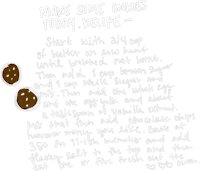 MAKE SOME COOKIES
TODAY. RECIPE —
Start with 3/4 cup
of butter on low heat
until browned not burnt.
Then add 1 cup brown sugar
and 1 cup white sugar and
mix. Then add one whole egg
and one egg yolk and about
a tablespoon of vanilla extract.
Just stir then add chocolate chips
however many you like. Bake at
350 for 11-14 minutes and add
flakey salt to the top and then
eat one or five fresh out the
oven.